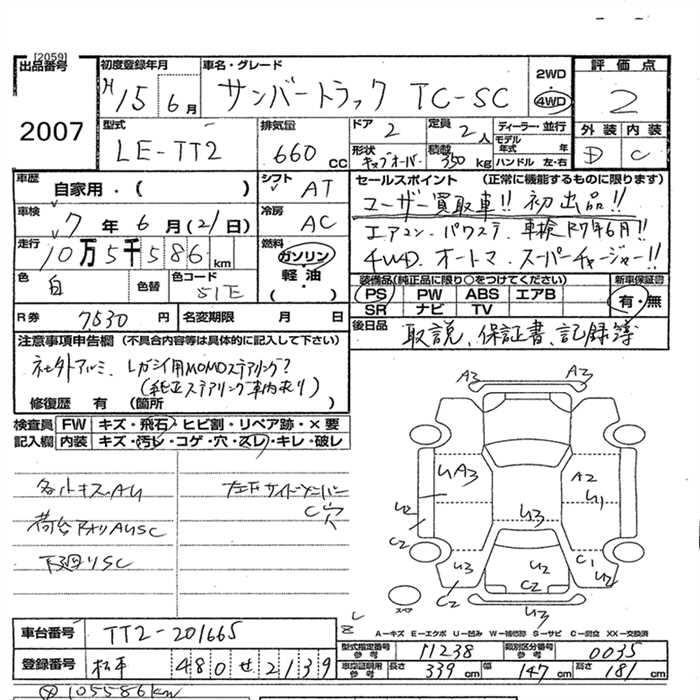 [2059]
出品番号 初度登録年月 車名・グレード 評価点
2007 H15 6月 サンバートラック TC-SC 2WD 4WD 2
型式 排気量 ドア 定員 ディーラー・並行 外装 内装
LE-TT2 660 CC 2 2人 モデル年式 年
形状 積載 ハンドル 左・右 D C
キャブオーバー 350 kg
車歴 自家用・( ) シフト AT セールスポイント (正常に機能するものに限ります)
車検 7年 6月(21日) 冷房 AC ユーザー買取車!! 初出品!!
走行 10万5千586km 燃料 ガソリン 軽油・ エアコン、パワステ、車検R7年6月!!
4WD、オートマ、スーパーチャージャー!!
色 白 色替 色コード 51E 装備品(純正品に限り○をつけてください) 新車保証書
PS PW ABS エアB 有・無
SR ナビ TV
R券 7530円 名変期限 月 日 後日品 取説、保証書、記録簿
注意事項申告欄 (不具合内容等は具体的に記入して下さい)
社外アルミ、レガシイ用MOMOステアリング?
(純正ステアリング車内有り)
修復歴 有 (箇所
検査員 FW キズ・飛石・ヒビ割・リペア跡・×要
記入欄 内装 キズ・汚レ・コゲ・穴・スレ・キレ・破レ
各小キズ、AU
左下サイドシルバー
C穴
荷台アオリAUSC
下廻りSC
A3 A3
UA3 A2
U2 U1
U3
C2 U3 U2 C1 U2
C2 C2
U3
スペア
A-キズ E-エクボ U-凹み W-補修跡 S-サビ C-腐食 XX-交換済
車台番号 TT2-201665 型式指定番号 参考 11238 類別区分番号 参考 0035
登録番号 松本 480せ2139 車庫証明用 参考 長さ 339cm 幅 147cm 高さ 181cm
105586km